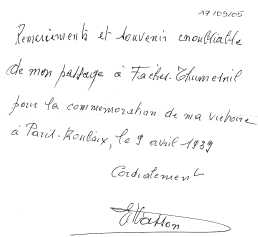 17/09/05
Remerciements et souvenir inoubliable
de mon passage à Faches-Thumesnil
pour la commémoration de ma victoire
à Paris-Roubaix, le 9 avril 1939
Cordialement
EMasson